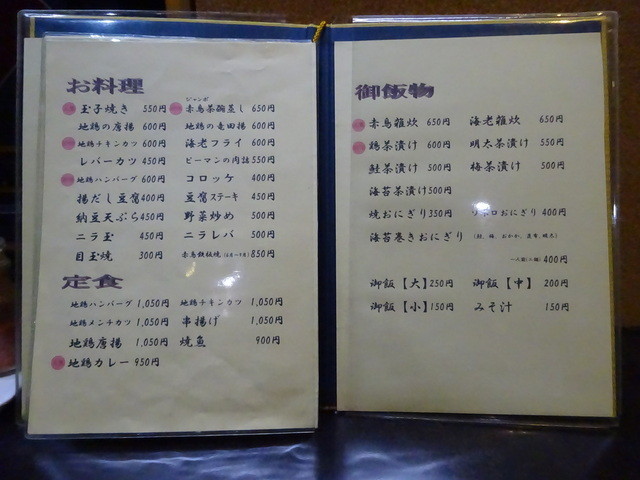 お料理
玉子焼き 550円
ジャンボ
赤鳥茶碗蒸し 650円
地鶏の唐揚 600円 地鶏の竜田揚 600円
地鶏チキンカツ 600円 海老フライ 600円
レバーカツ 450円 ピーマンの肉詰 550円
地鶏ハンバーグ 600円 コロッケ 400円
揚だし豆腐 400円 豆腐ステーキ 450円
納豆天ぷら 450円 野菜炒め 500円
ニラ玉 450円 ニラレバ 500円
目玉焼 300円 赤鳥鉄板焼 850円
定食
地鶏ハンバーグ 1,050円 地鶏チキンカツ 1,050円
地鶏メンチカツ 1,050円 串揚げ 1,050円
地鶏唐揚 1,050円 焼魚 900円
地鶏カレー 950円
御飯物
赤鳥雑炊 650円 海老雑炊 650円
鶏茶漬け 600円 明太茶漬け 550円
鮭茶漬け 500円 梅茶漬け 500円
海苔茶漬け 500円
焼おにぎり 350円 おにぎり 400円
海苔巻きおにぎり
400円
御飯【大】 250円 御飯【中】 200円
御飯【小】 150円 みそ汁 150円